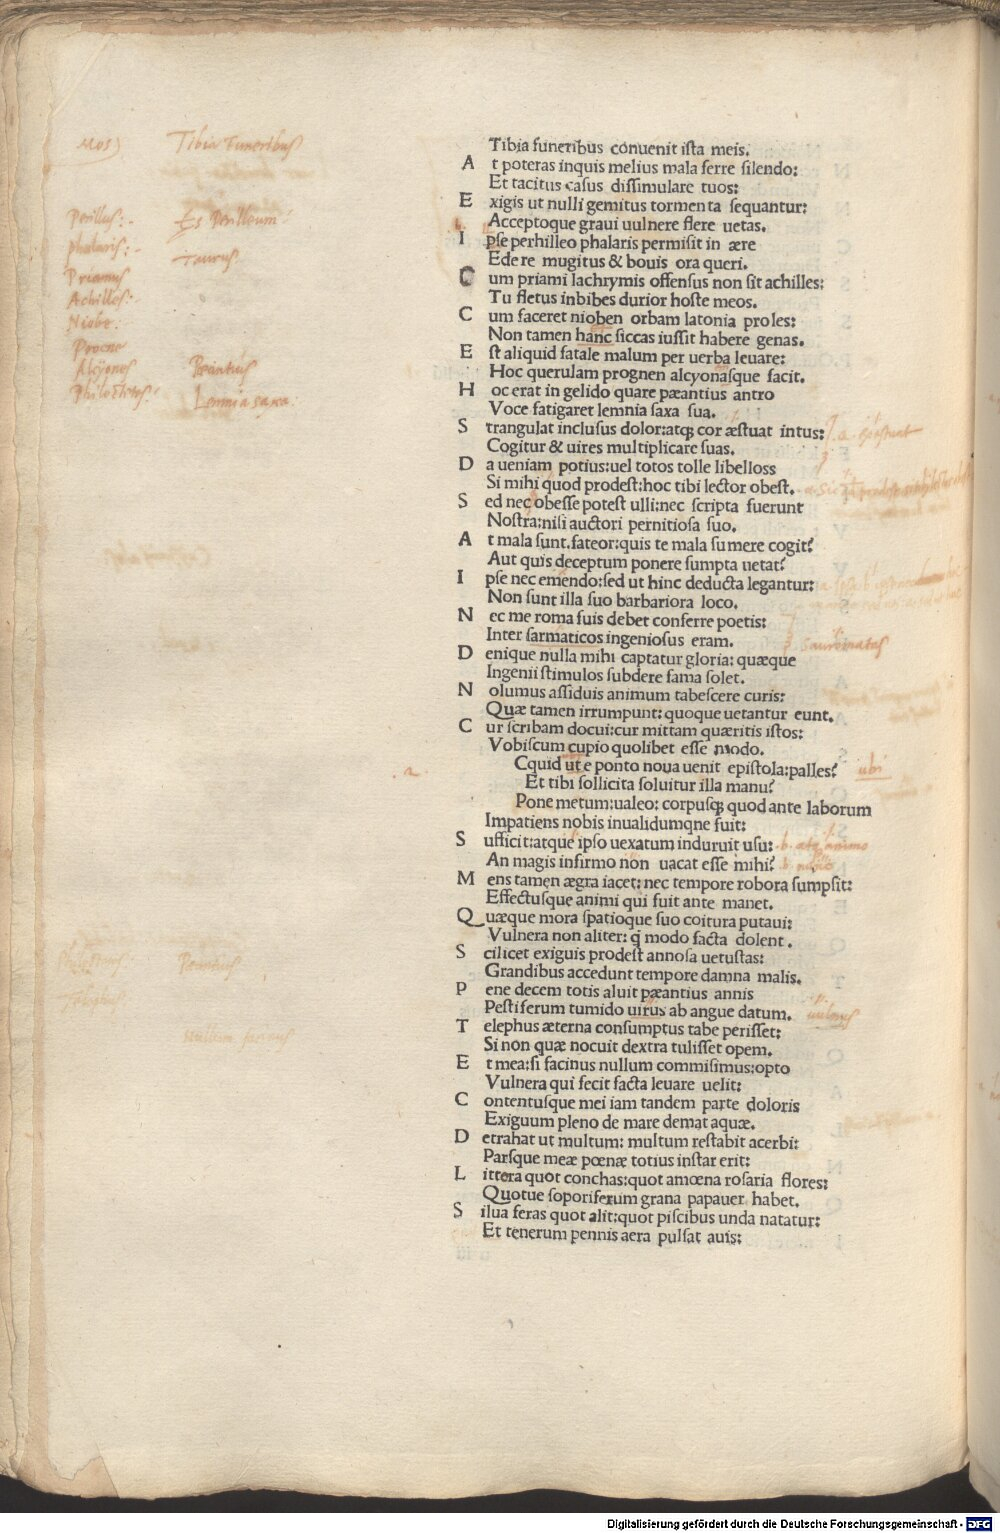 Mos)
Tibia Funeribus
Perillus:
Es Perilleum
Phalaris:
Taurus
Priamus
Achilles:
Niobe:
Procne
Alcyones
Paeantius
Philoctetes:
Lemnia saxa.
Tibia funeribus conuenit ista meis.
A t poteras inquis melius mala ferre silendo:
Et tacitus casus dissimulare tuos:
E xigis ut nulli gemitus tormenta sequantur:
Acceptoque graui uulnere flere uetas.
I pse perhilleo phalaris permisit in ære
Edere mugitus & bouis ora queri.
C um priami lachrymis offensus non sit achilles:
Tu fletus inhibes durior hoste meos.
C um faceret nioben orbam latonia proles:
Non tamen hanc siccas iussit habere genas.
E st aliquid fatale malum per uerba leuare:
Hoc querulam prognen alcyonasque facit.
H oc erat in gelido quare pæantius antro
Voce fatigaret lemnia saxa sua.
S trangulat inclusus dolor:atq; cor æstuat intus:
Cogitur & uires multiplicare suas.
D a ueniam potius:uel totos tolle libelloss
Si mihi quod prodest:hoc tibi lector obest.
S ed nec obesse potest ulli:nec scripta fuerunt
Nostra:nisi auctori pernitiosa suo.
A t mala sunt.fateor:quis te mala sumere cogit?
Aut quis deceptum ponere sumpta uetat?
I pse nec emendo:sed ut hinc deducta legantur:
Non sunt illa suo barbariora loco.
N ec me roma suis debet conferre poetis:
Inter sarmaticos ingeniosus eram.
Sauromatas
D enique nulla mihi captatur gloria: quæque
Ingenii stimulos subdere fama solet.
N olumus assiduis animum tabescere curis:
Quæ tamen irrumpunt: quoque uetantur eunt.
C ur scribam docui:cur mittam quæritis istos:
Vobiscum cupio quolibet esse modo.
Cquid ut e ponto noua uenit epistola:palles?
ubi
Et tibi sollicita soluitur illa manu?
Pone metum:ualeo: corpusq; quod ante laborum
Impatiens nobis inualidumqne fuit:
S ufficit:atque ipso uexatum induruit usu:
An magis infirmo non uacat esse mihi?
M ens tamen ægra iacet: nec tempore robora sumpsit:
Effectusque animi qui fuit ante manet.
Q uæque mora spatioque suo coitura putaui:
Vulnera non aliter: q̃ modo facta dolent.
S cilicet exiguis prodest annosa uetustas:
Paeantius
Grandibus accedunt tempore damna malis.
P ene decem totis aluit pæantius annis
Telephus
Pestiferum tumido uirus ab angue datum.
uulnus
T elephus æterna consumptus tabe perisset:
Nullum facinus
Si non quæ nocuit dextra tulisset opem.
E t mea:si facinus nullum commisimus:opto
Vulnera qui fecit facta leuare uelit:
C ontentusque mei iam tandem parte doloris
Exiguum pleno de mare demat aquæ.
D etrahat ut multum: multum restabit acerbi:
Parsque meæ pœnæ totius instar erit:
L ittora quot conchas:quot amœna rosaria flores:
Quotue soporiferum grana papauer habet.
S ilua feras quot alit:quot piscibus unda natatur:
Et tenerum pennis aera pulsat auis:
Digitalisierung gefördert durch die Deutsche Forschungsgemeinschaft - DFG